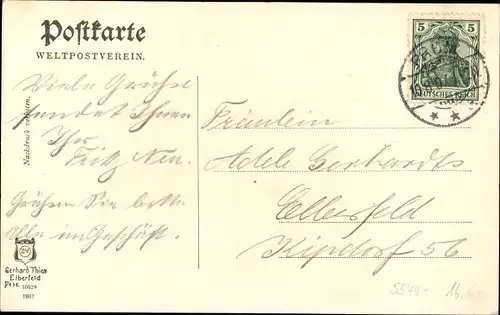 Postkarte
WELTPOSTVEREIN.
Viele Grüße
sendet Ihnen
Ihr
Fritz Neu.
Grüßen Sie bitte
Alle im Geschäft.
Nachdruck verboten.
Gerhard Thien
Elberfeld
1907
5 5
DEUTSCHES REICH
Fräulein
Adele Gerhardts
Elberfeld
Kipdorf 56